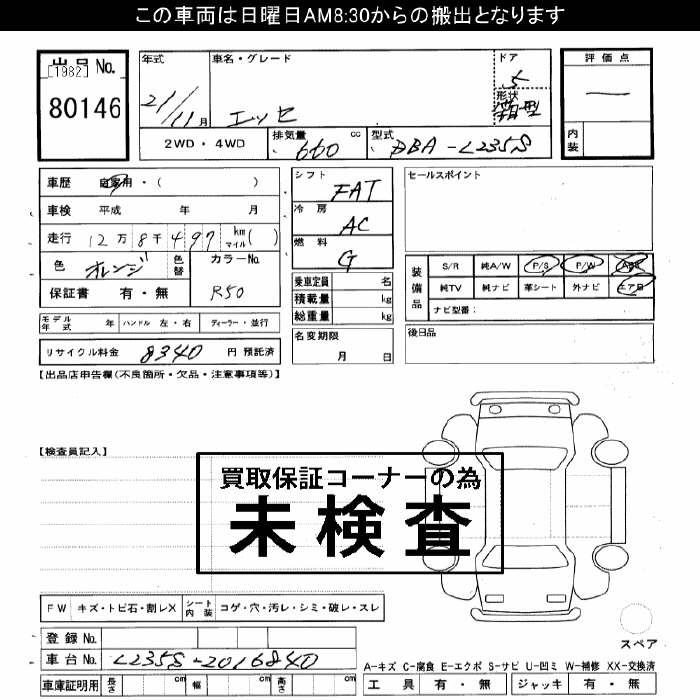 この車両は日曜日AM8:30からの搬出となります
出品No.
[1982]
80146
年式
21/11月
車名・グレード
エッセ
ドア
5
形状
箱型
2WD・4WD
排気量
660 cc
型式
DBA-L235S
評価点
―
内装
車歴 自家用・( )
車検 平成 年 月
走行 12万8千497 km マイル( )
色 オレンジ 色替
カラーNo. R50
保証書 有・無
モデル年式 年 ハンドル 左・右 ディーラー・並行
リサイクル料金 8340 円 預託済
シフト FAT
冷房 AC
燃料 G
乗車定員 名
積載量 kg
総重量 kg
名変期限
月 日
セールスポイント
装備品
S/R 純A/W P/S P/W ABS
純TV 純ナビ 革シート 外ナビ エアB
ナビ型番:
後日品
【出品店申告欄(不良箇所・欠品・注意事項等)】
【検査員記入】
買取保証コーナーの為
未検査
FW キズ・トビ石・割レX シート内装 コゲ・穴・汚レ・シミ・破レ・スレ
登録No.
車台No. L235S-2016840
車庫証明用 長さ cm 幅 cm 高さ cm
スペア
A-キズ C-腐食 E-エクボ S-サビ U-凹ミ W-補修 XX-交換済
工具 有・無 ジャッキ 有・無